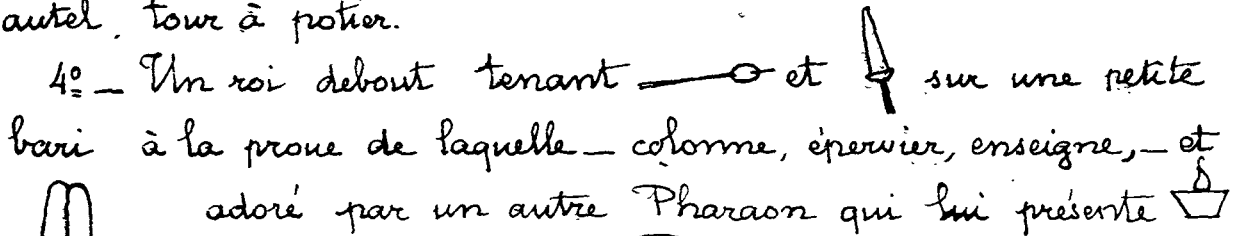 autel, tour à potier.
4º — Un roi debout tenant et sur une petite
bari à la proue de laquelle — colonne, épervier, enseigne, — et
adoré par un autre Pharaon qui lui présente